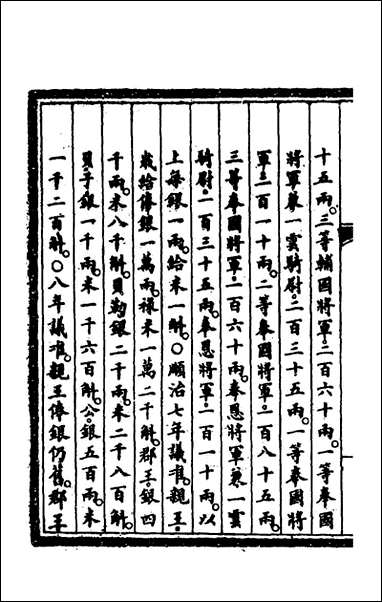 十五兩。三等輔國將軍。二百六十兩。一等奉國
將軍兼一雲騎尉。二百三十五兩。一等奉國將
軍。二百一十兩。二等奉國將軍。一百八十五兩。
三等奉國將軍。一百六十兩。奉恩將軍兼一雲
騎尉。一百三十五兩。奉恩將軍。一百一十兩。以
上每銀一兩。給米一斛。○順治七年議准。親王。
歲給俸銀一萬兩。祿米一萬二千斛。郡王。銀四
千兩。米八千斛。貝勒銀二千兩。米二千八百斛。
貝子銀一千兩。米一千六百斛。公。銀五百兩。米
一千二百斛。○八年議准。親王俸銀仍舊。郡王